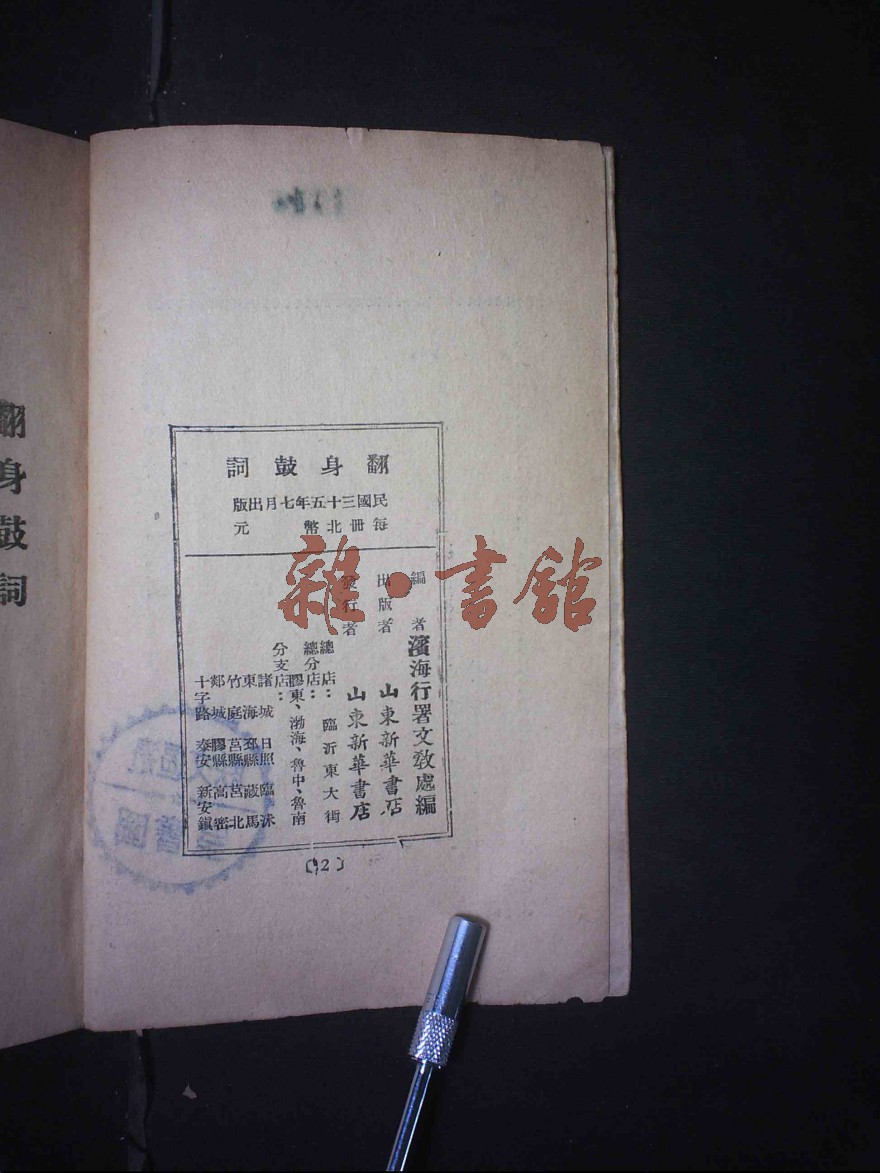 翻身鼓詞
翻身鼓詞
民國三十五年七月出版
每冊北幣　元
編者　濱海行署文教處編
出版者　山東新華書店
發行者　山東新華書店
總店：臨沂東大街
總分店：膠東、渤海、魯中、魯南
分支店：
諸城　日照　臨沭
東海　邳縣　藏馬
竹庭　莒縣　莒北
郯城　膠縣　高密
十字路　泰安　新安鎮
〔2〕
雜·書館
圖書